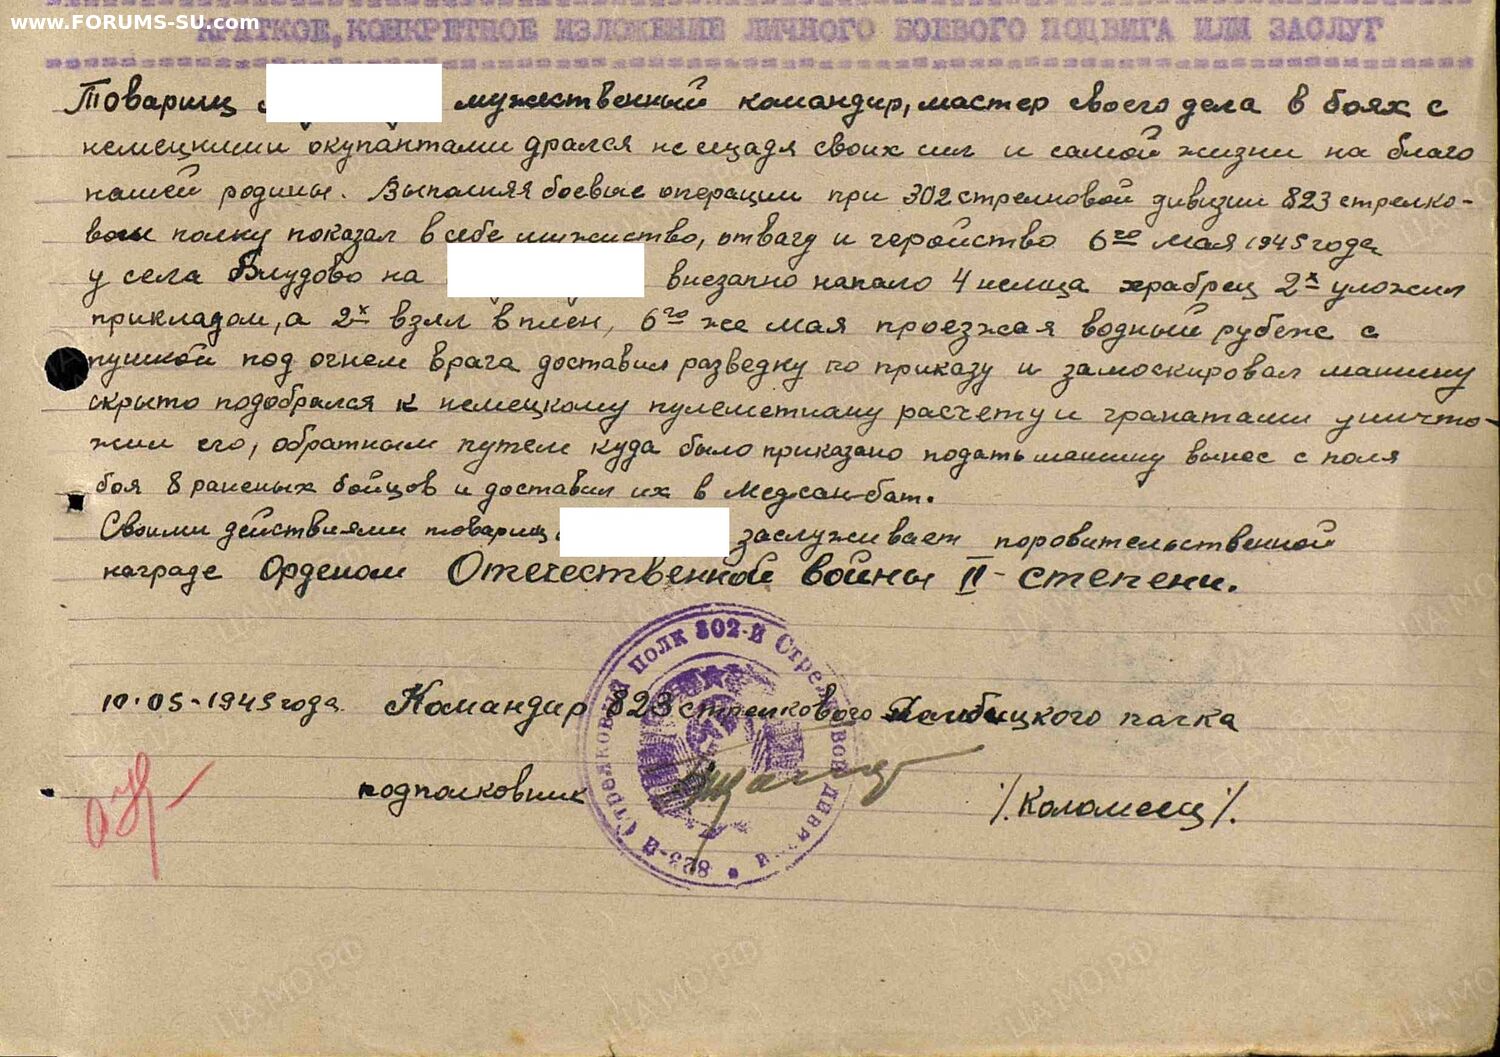 www.FORUMS-SU.com
КРАТКОЕ, КОНКРЕТНОЕ ИЗЛОЖЕНИЕ ЛИЧНОГО БОЕВОГО ПОДВИГА ИЛИ ЗАСЛУГ
Товарищ мужественный командир, мастер своего дела в боях с
немецкими окупантами дрался не щадя своих сил и самой жизни на благо
нашей родины. Выполняя боевые операции при 302 стрелковой дивизии 823 стрелко-
вом полку показал в себе мужество, отвагу и геройство 6го мая 1945 года
у села Блудово на внезапно напало 4 немца храбрец 2х уложил
прикладом, а 2х взял в плен, 6го же мая проезжая водный рубеж с
пушкой под огнем врага доставил разведку по приказу и замоскировал машину
скрыто подобрался к немецкому пулеметному расчету и гранатами уничто-
жил его, обратным путем куда было приказано подать машину вынес с поля
боя 8 раненых бойцов и доставил их в Медсан-бат.
Своими действиями товарищ заслуживает поровительственной
награде Орденом Отечественной войны II- степени.
10.05-1945 года. Командир 823 стрелкового полка
подполковник /.Коломеец/.
823-й Стрелковый полк 302-й Стрелковой
ЦАМО.РФ